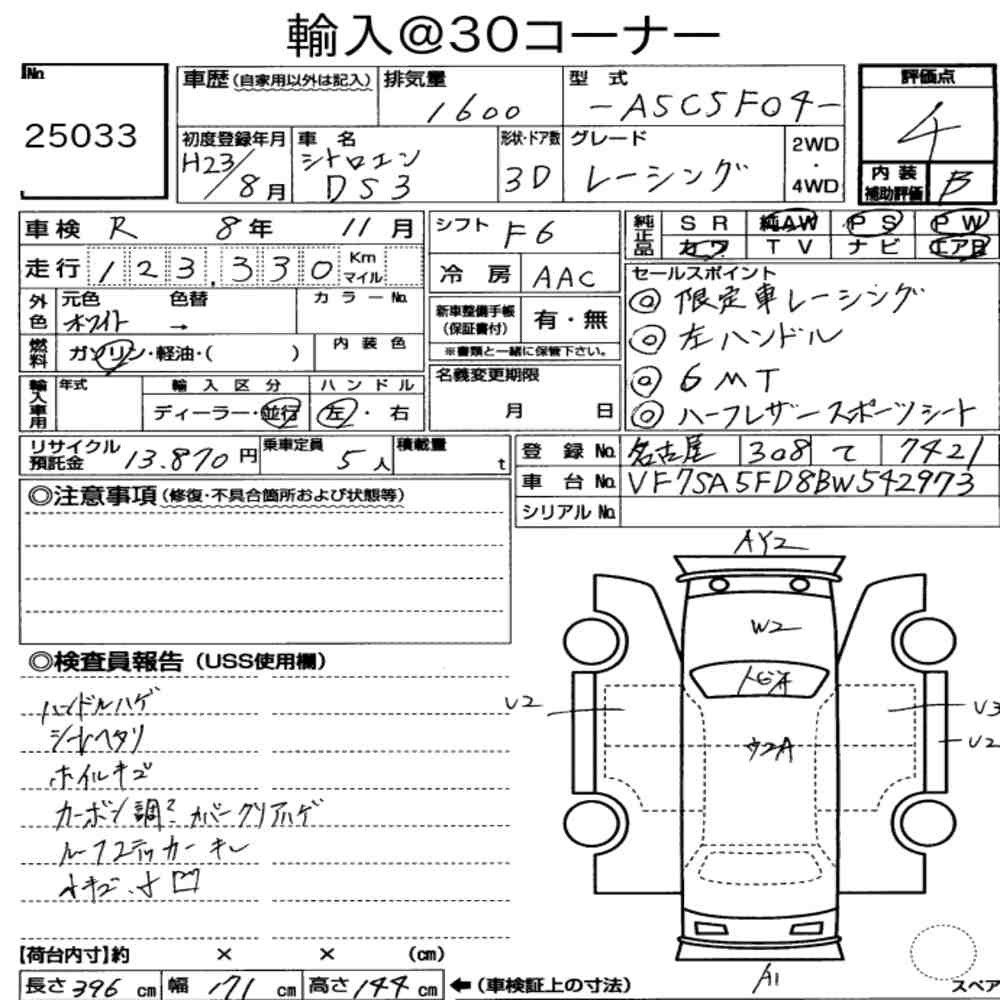 輸入@30コーナー
No
25033
車歴(自家用以外は記入)
排気量
1600
型式
-A5C5F04-
評価点
4
初度登録年月
H23/8月
車名
シトロエン
DS3
形状・ドア数
3D
グレード
レーシング
2WD
・
4WD
内装
補助評価
B
車検 R 8年 11月
走行 123,330 Km
マイル
外色
元色
ホワイト
色替
→
カラーNo.
燃料
ガソリン・軽油・( )
内装色
輸入車用
年式
輸入区分
ディーラー・並行
ハンドル
左・右
シフト F6
冷房 AAC
新車整備手帳
(保証書付)
有・無
※書類と一緒に保管下さい。
名義変更期限
月 日
純正品
SR 純AW PS PW
カワ TV ナビ エアB
セールスポイント
◎限定車レーシング
◎左ハンドル
◎6MT
◎ハーフレザースポーツシート
リサイクル
預託金
13.870円
乗車定員
5人
積載量
t
登録No. 名古屋 308 て 7421
車台No. VF7SA5FD8BW542973
シリアルNo.
◎注意事項(修復・不具合箇所および状態等)
◎検査員報告(USS使用欄)
ハンドルハゲ
シートヘタリ
ホイルキズ
カーボン調 カバークリアハゲ
ルーフステッカーキレ
小キズ.寸凹
AY2
W2
U2
U3
U2
A1
スペア
【荷台内寸】約 × × (cm)
長さ396cm 幅171cm 高さ144cm
←(車検証上の寸法)